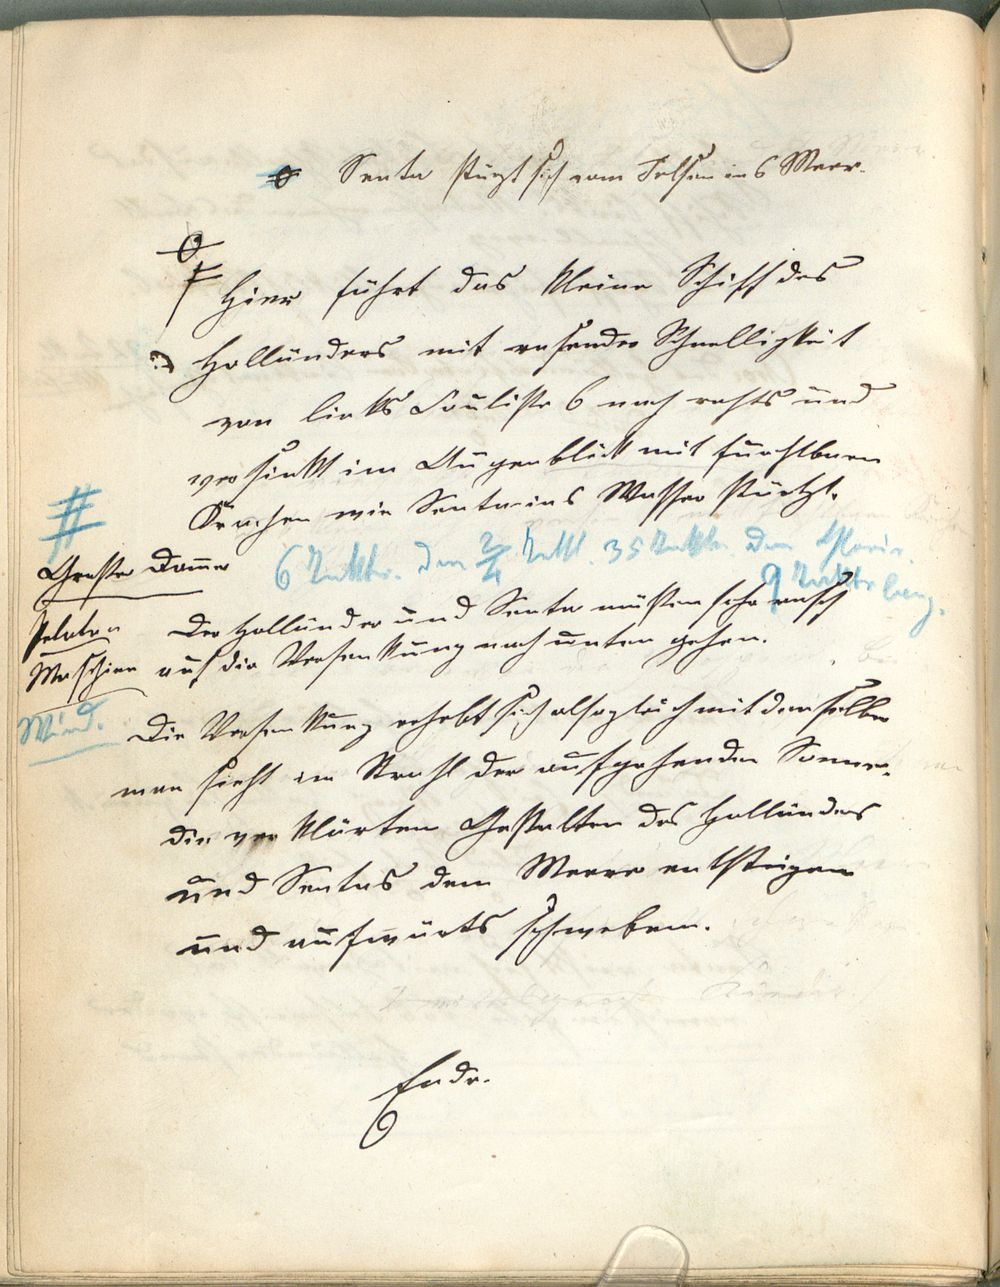 Senta stürzt sich vom Felsen ins Meer.
Hier fährt das kleine Schiff des
Holländers mit rasender Schnelligkeit
von links Coulisse 6 nach rechts und
versinkt im Augenblick mit furchtbaren
Krachen wie Senta ins Wasser stürtzt.
#
6 Takte. den 2/4 Takt. 35 Takte. dem
9 Takte lang.
Großer Donner
Peloton
Maschine
Wind.
Der Holländer und Senta müssen sehr rasch
auf die Versenkung nach unten gehen.
Die Versenkung erhebt sich alsogleich mit denselben
man sieht im Strahl der aufgehenden Sonne,
die verklärten Gestalten des Holländers
und Sentas dem Meere entsteigen
und aufwärts schweben.
Ende.